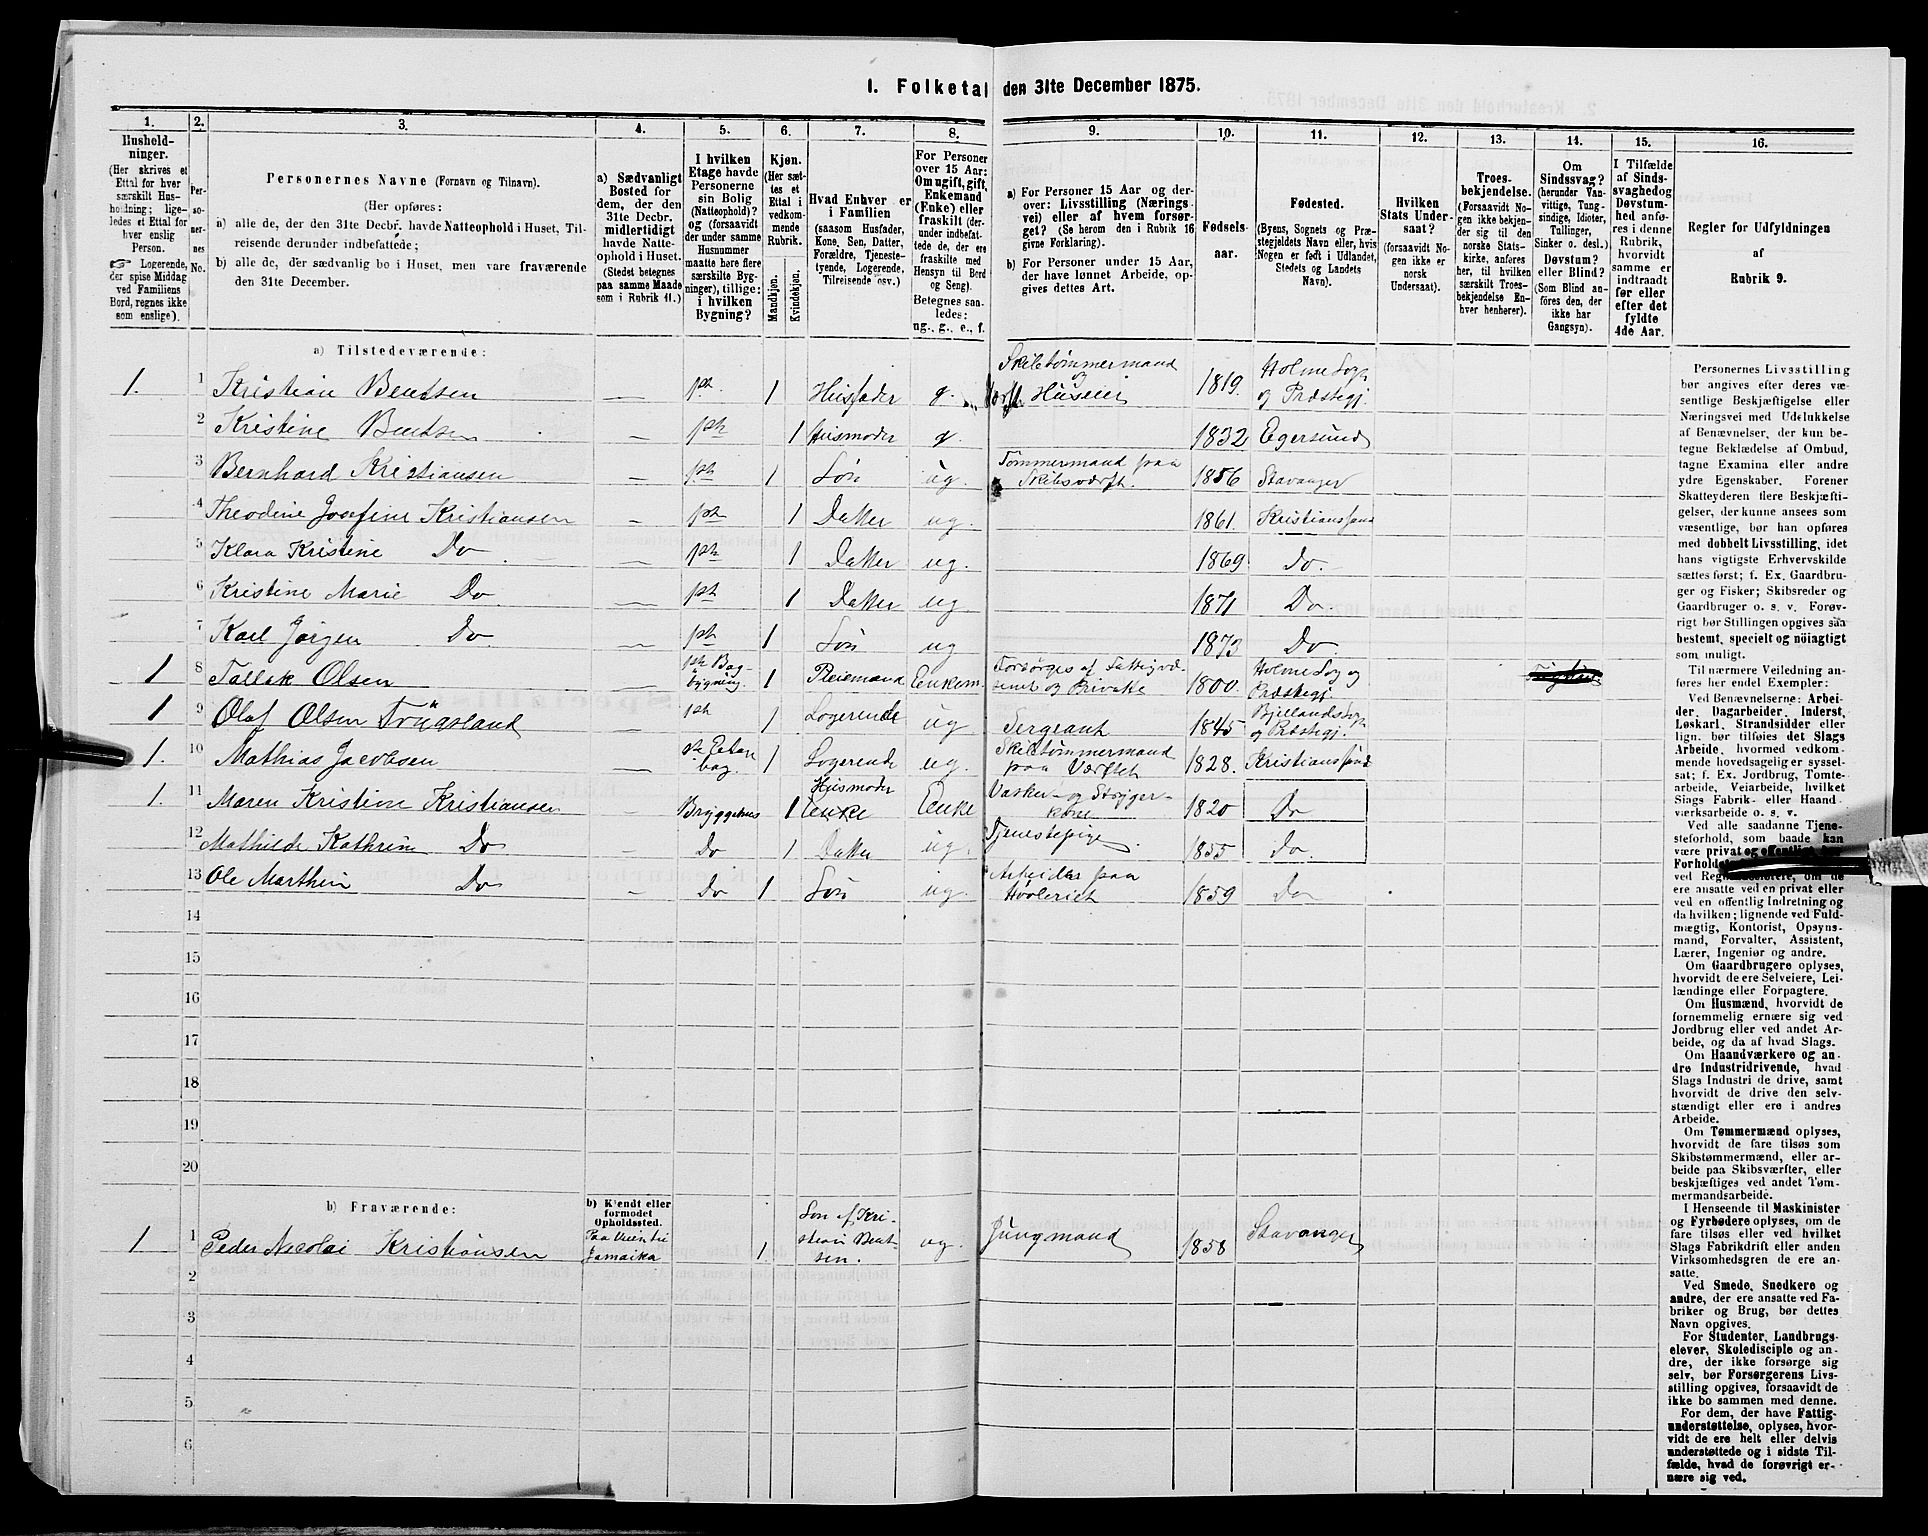 I. Folketal den 31te December 1875.
1. 2. 3. 4. 5. 6. 7. 8. 9. 10. 11. 12. 13. 14. 15. 16.
Husholdninger.
(Her skrives et
Ettal for hver
særskilt Husholdning; ligeledes et Ettal for
hver enslig
Person.
Logerende,
der spise Middag
ved Familiens
Bord, regnes ikke
som enslige).
Personernes No.
Personernes Navne (Fornavn og Tilnavn).
(Her opføres:
a) alle de, der den 31te Decbr. havde Natteophold i Huset, Tilreisende derunder indbefattede;
b) alle de, der sædvanlig bo i Huset, men vare fraværende
den 31te December.
a) Sædvanligt
Bosted for
dem, der den
31te Decbr.
midlertidigt
havde Natteophold i Huset.
(Stedet betegnes
paa samme Maade
som i Rubrik 11.)
I hvilken
Etage havde
Personerne
sin Bolig
(Natteophold)?
og (forsaavidt
der under samme
Husnummer
maatte høre flere
særskilte Bygninger), tillige:
i hvilken
Bygning?
Kjøn.
(Her sættes et
Ettal i
vedkommende
Rubrik.
Mandkjøn.
Kvindekjøn.
Hvad Enhver er
i Familien
(saasom Husfader,
Kone, Søn, Datter,
Forældre, Tjenestetyende, Logerende,
Tilreisende osv.)
For Personer
over 15 Aar:
Om ugift, gift,
Enkemand
(Enke) eller
fraskilt (derunder indbefattede de, der ere
fraskilte med
Hensyn til Bord
og Seng).
Betegnes saaledes:
ug., g., e., f.
a) For Personer 15 Aar og derover: Livsstilling (Næringsvei) eller af hvem forsørget? (Se herom den i Rubrik 16
givne Forklaring).
b) For Personer under 15 Aar,
der have lønnet Arbeide, opgives dettes Art.
Fødselsaar.
Fødested.
(Byens, Sognets og Præstegjeldets Navn eller, hvis
Nogen er født i Udlandet,
Stedets og Landets
Navn).
Hvilken
Stats Undersaat?
(forsaavidt Nogen ikke er
norsk
Undersaat).
Troesbekjendelse.
(Forsaavidt Nogen ikke bekjender sig til den
norske Statskirke, anføres
her, til hvilken
særskilt Troesbekjendelse Enhver henhører).
Om
Sindssvag?
(herunder Vanvittige, Tungsindige, Idioter,
Tullinger,
Sinker o. desl.)
Døvstum?
eller Blind?
(Som Blind anføres den, der
ikke har
Gangsyn).
I Tilfælde
af Sindssvaghed og
Døvstumhed anføres i denne
Rubrik,
hvorvidt
samme er
indtraadt
før eller
efter det
fyldte
4de Aar.
Regler for Udfyldningen
af
Rubrik 9.
a) Tilstedeværende:
1. 1 Kristian Bentsen — 1ste 1 Husfader g. Skibstømmermand og Huseier 1819. Holme Sogn og Præstegj.
2 Kristine Bentsen — 1ste 1 Husmoder g. 1832 Egersund
3 Bernhard Kristiansen — 1ste 1 Søn ug. Tømmermand paa Skibsværft. 1856 Stavanger
4 Theodine Josefine Kristiansen — 1ste 1 Datter ug. 1861. Kristianssand
5 Klara Kristine Do — 1ste 1 Datter ug. 1869 Do.
6 Kristine Marie Do — 1ste 1 Datter ug. 1871 Do.
7 Karl Jørgen Do — 1ste 1 Søn ug 1873 Do.
1 8 Tallak Olsen — 1ste Bagbygning. 1 Pleiemand Enkem. Forsørges af Fattigvæsenet og Private 1800. Holme Sog og Præstegj.
1 9 Olaf Olsen Trygsland — 1ste 1 Logerende ug Sergeant 1845 Bjellands Sogn og Præstegj.
1. 10 Mathias Jacobsen — 1 Logerende ug. Skibstømmermand paa Værftet 1828. Kristianssand
1. 11 Maren Kristine Kristiansen Bryggehus 1 Husmoder Enke Enke Vasker- og Strygerkone 1820 Do
12 Mathilde Kathrine Do — Do 1 Datter ug. Tjenestepige. 1855 Do.
13 Ole Marthin Do — Do 1 Søn ug. Arbeider paa Høvleriet 1859 Do
14
15
16
17
18
19
20
b) Fraværende:
b) Kjendt eller
formodet
Opholdssted.
1 1 Peder Nicolai Kristiansen Jamaika 1. Søn af Kristian Bentsen. ug. Jungmand 1858 Stavanger
2
3
4
5
6
Personernes Livsstilling
bør angives efter deres væsentlige Beskjæftigelse eller
Næringsvei med Udelukkelse
af Benævnelser, der kun betegne Beklædelse af Ombud,
tagne Examina eller andre
ydre Egenskaber. Forener
Skatteyderen flere Beskjæftigelser, der kunne ansees som
væsentlige, bør han opføres
med dobbelt Livsstilling, idet
hans vigtigste Erhvervskilde
sættes først; f. Ex. Gaardbruger og Fisker; Skibsreder og
Gaardbruger o. s. v. Forøvrigt bør Stillingen opgives saa
bestemt, specielt og nøiagtigt
som muligt.
Til nærmere Veiledning anføres her endel Exempler:
Ved Benævnelserne: Arbeider, Dagarbeider, Inderst,
Løskarl, Strandsidder eller
lign. bør tilføies det Slags
Arbeide, hvormed vedkommende hovedsagelig er sysselsat; f. Ex. Jordbrug, Tomtearbeide, Veiarbeide, hvilket
Slags Fabrik- eller Haandværksarbeide o. s. v.
Ved alle saadanne Tjenesteforhold, som baade kan
være privat og offentligt,
Forholdet
ved
ere ansatte ved en privat eller
ved en offentlig Indretning og
da hvilken; lignende ved Fuldmægtig, Kontorist, Opsynsmand, Forvalter, Assistent,
Lærer, Ingeniør og andre.
Om Gaardbrugere oplyses,
hvorvidt de ere Selveiere, Leilændinge eller Forpagtere.
Om Husmænd, hvorvidt de
fornemmelig ernære sig ved
Jordbrug eller ved andet Arbeide, og da af hvad Slags.
Om Haandværkere og andre Industridrivende, hvad
Slags Industri de drive, samt
hvorvidt de drive den selvstændigt eller ere i andres
Arbeide.
Om Tømmermænd oplyses,
hvorvidt de fare tilsøs som
Skibstømmermænd, eller arbeide paa Skibsværfter, eller
beskjæftiges ved andet Tømmermandsarbeide.
I Henseende til Maskinister
og Fyrbødere oplyses, om de
fare tilsøs eller ved hvilket
Slags Fabrikdrift eller anden
Virksomhedsgren de ere ansatte.
Ved Smede, Snedkere og
andre, der ere ansatte ved Fabriker og Brug, bør dettes
Navn opgives.
For Studenter, Landbrugselever, Skoledisciple og andre, der ikke forsørge sig
selv, bør Forsørgerens Livsstilling opgives, forsaavidt de
ikke bo sammen med denne.
For dem, der have Fattigunderstøttelse, oplyses, hvorvidt de ere helt eller delvis
understøttede og i sidste Tilfælde, hvad de forøvrigt ernære sig ved.